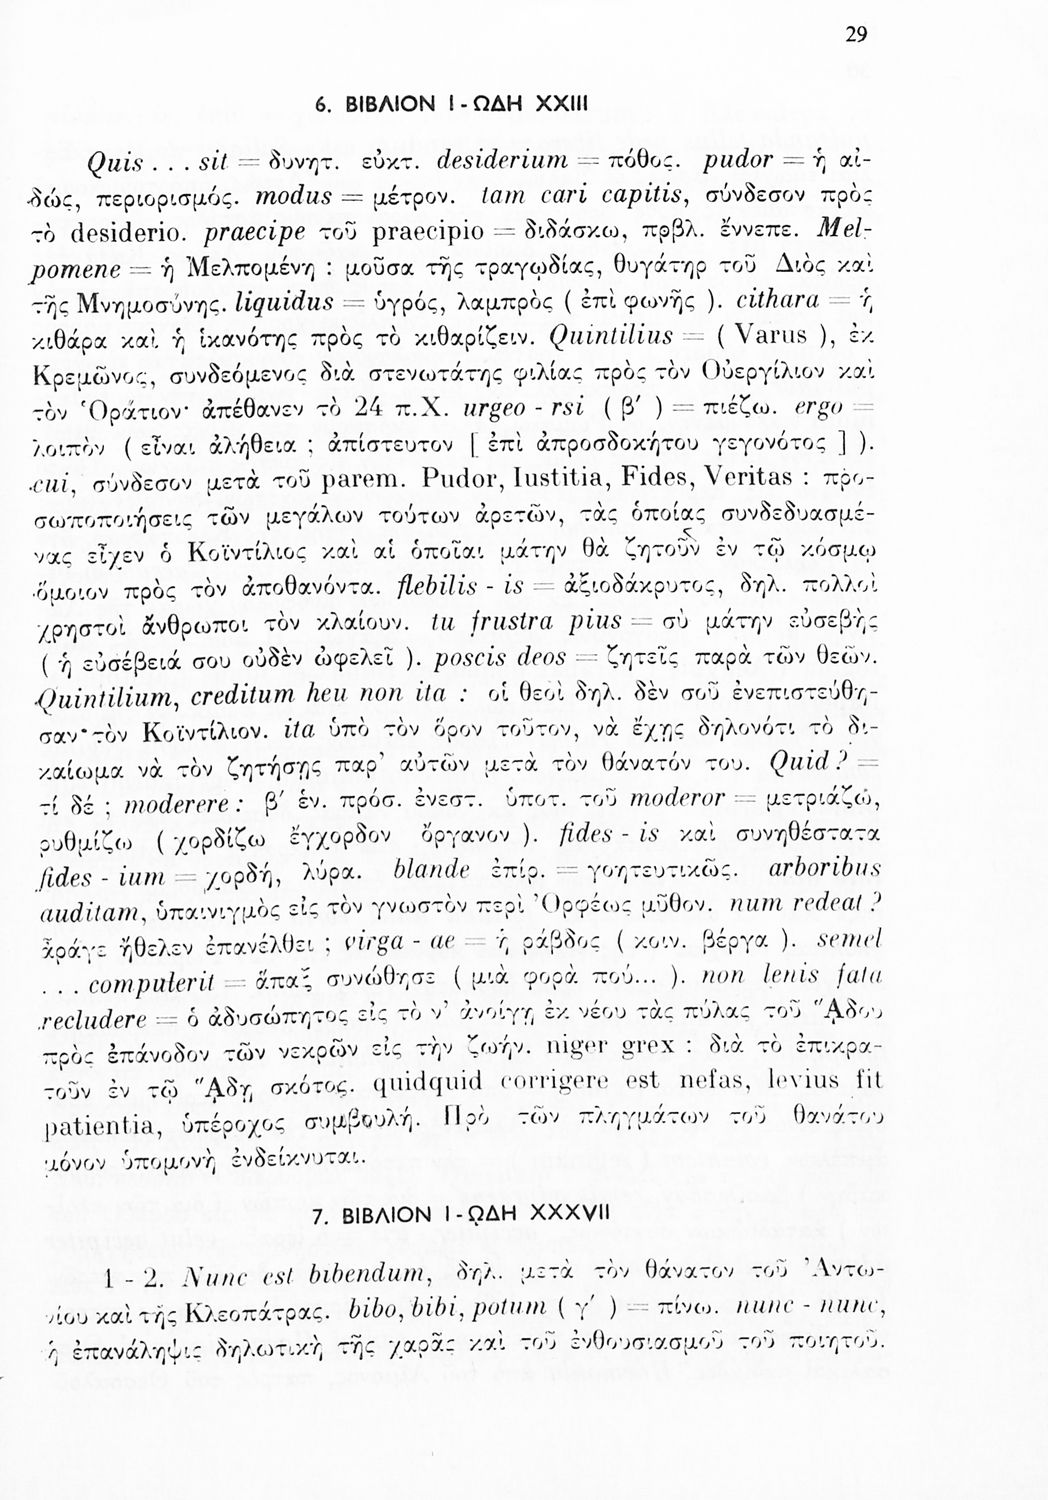 29
6. ΒΙΒΛΙΟΝ Ι - ΩΔΗ XXIII
Quis . . . sit = δυνητ. εὐκτ. desiderium = πόθος. pudor = ἡ αἰ-
δώς, περιορισμός. modus = μέτρον. tam cari capitis, σύνδεσον πρὸς
τὸ desiderio. praecipe τοῦ praecipio = διδάσκω, πρβλ. ἔννεπε. Mel-
pomene = ἡ Μελπομένη : μοῦσα τῆς τραγῳδίας, θυγάτηρ τοῦ Διὸς καὶ
τῆς Μνημοσύνης. liquidus = ὑγρός, λαμπρὸς ( ἐπὶ φωνῆς ). cithara = ἡ
κιθάρα καὶ ἡ ἱκανότης πρὸς τὸ κιθαρίζειν. Quintilius = ( Varus ), ἐκ
Κρεμῶνος, συνδεόμενος διὰ στενωτάτης φιλίας πρὸς τὸν Οὐεργίλιον καὶ
τὸν Ὁράτιον· ἀπέθανεν τὸ 24 π.Χ. urgeo - rsi ( β' ) = πιέζω. ergo =
λοιπὸν ( εἶναι ἀλήθεια ; ἀπίστευτον [ ἐπὶ ἀπροσδοκήτου γεγονότος ] ).
cui, σύνδεσον μετὰ τοῦ parem. Pudor, Iustitia, Fides, Veritas : προ-
σωποποιήσεις τῶν μεγάλων τούτων ἀρετῶν, τὰς ὁποίας συνδεδυασμέ-
νας εἶχεν ὁ Κοϊντίλιος καὶ αἱ ὁποῖαι μάτην θὰ ζητοῦν ἐν τῷ κόσμῳ
ὅμοιον πρὸς τὸν ἀποθανόντα. flebilis - is = ἀξιοδάκρυτος, δηλ. πολλοὶ
χρηστοὶ ἄνθρωποι τὸν κλαίουν. tu frustra pius = σὺ μάτην εὐσεβὴς
( ἡ εὐσέβειά σου οὐδὲν ὠφελεῖ ). poscis deos = ζητεῖς παρὰ τῶν θεῶν.
Quintilium, creditum heu non ita : οἱ θεοὶ δηλ. δὲν σοῦ ἐνεπιστεύθη-
σαν τὸν Κοϊντίλιον. ita ὑπὸ τὸν ὅρον τοῦτον, νὰ ἔχῃς δηλονότι τὸ δι-
καίωμα νὰ τὸν ζητήσῃς παρ' αὐτῶν μετὰ τὸν θάνατόν του. Quid ? =
τί δέ ; moderere : β' ἑν. πρόσ. ἐνεστ. ὑποτ. τοῦ moderor = μετριάζω,
ρυθμίζω ( χορδίζω ἔγχορδον ὄργανον ). fides - is καὶ συνηθέστατα
fides - ium = χορδή, λύρα. blande ἐπίρ. = γοητευτικῶς. arboribus
auditam, ὑπαινιγμὸς εἰς τὸν γνωστὸν περὶ Ὀρφέως μῦθον. num redeat ?
ἆράγε ἤθελεν ἐπανέλθει ; virga - ae = ἡ ράβδος ( κοιν. βέργα ). semel
. . . compulerit = ἅπαξ συνώθησε ( μιὰ φορὰ πού... ). non lenis fata
recludere = ὁ ἀδυσώπητος εἰς τὸ ν' ἀνοίγῃ ἐκ νέου τὰς πύλας τοῦ Ἅδου
πρὸς ἐπάνοδον τῶν νεκρῶν εἰς τὴν ζωήν. niger grex : διὰ τὸ ἐπικρα-
τοῦν ἐν τῷ Ἅδῃ σκότος. quidquid corrigere est nefas, levius fit
patientia, ὑπέροχος συμβουλή. Πρὸ τῶν πληγμάτων τοῦ θανάτου
μόνον ὑπομονὴ ἐνδείκνυται.
7. ΒΙΒΛΙΟΝ Ι - ΩΔΗ XXXVII
1 - 2. Nunc est bibendum, δηλ. μετὰ τὸν θάνατον τοῦ Ἀντω-
νίου καὶ τῆς Κλεοπάτρας. bibo, bibi, potum ( γ' ) = πίνω. nunc - nunc,
ἡ ἐπανάληψις δηλωτικὴ τῆς χαρᾶς καὶ τοῦ ἐνθουσιασμοῦ τοῦ ποιητοῦ.